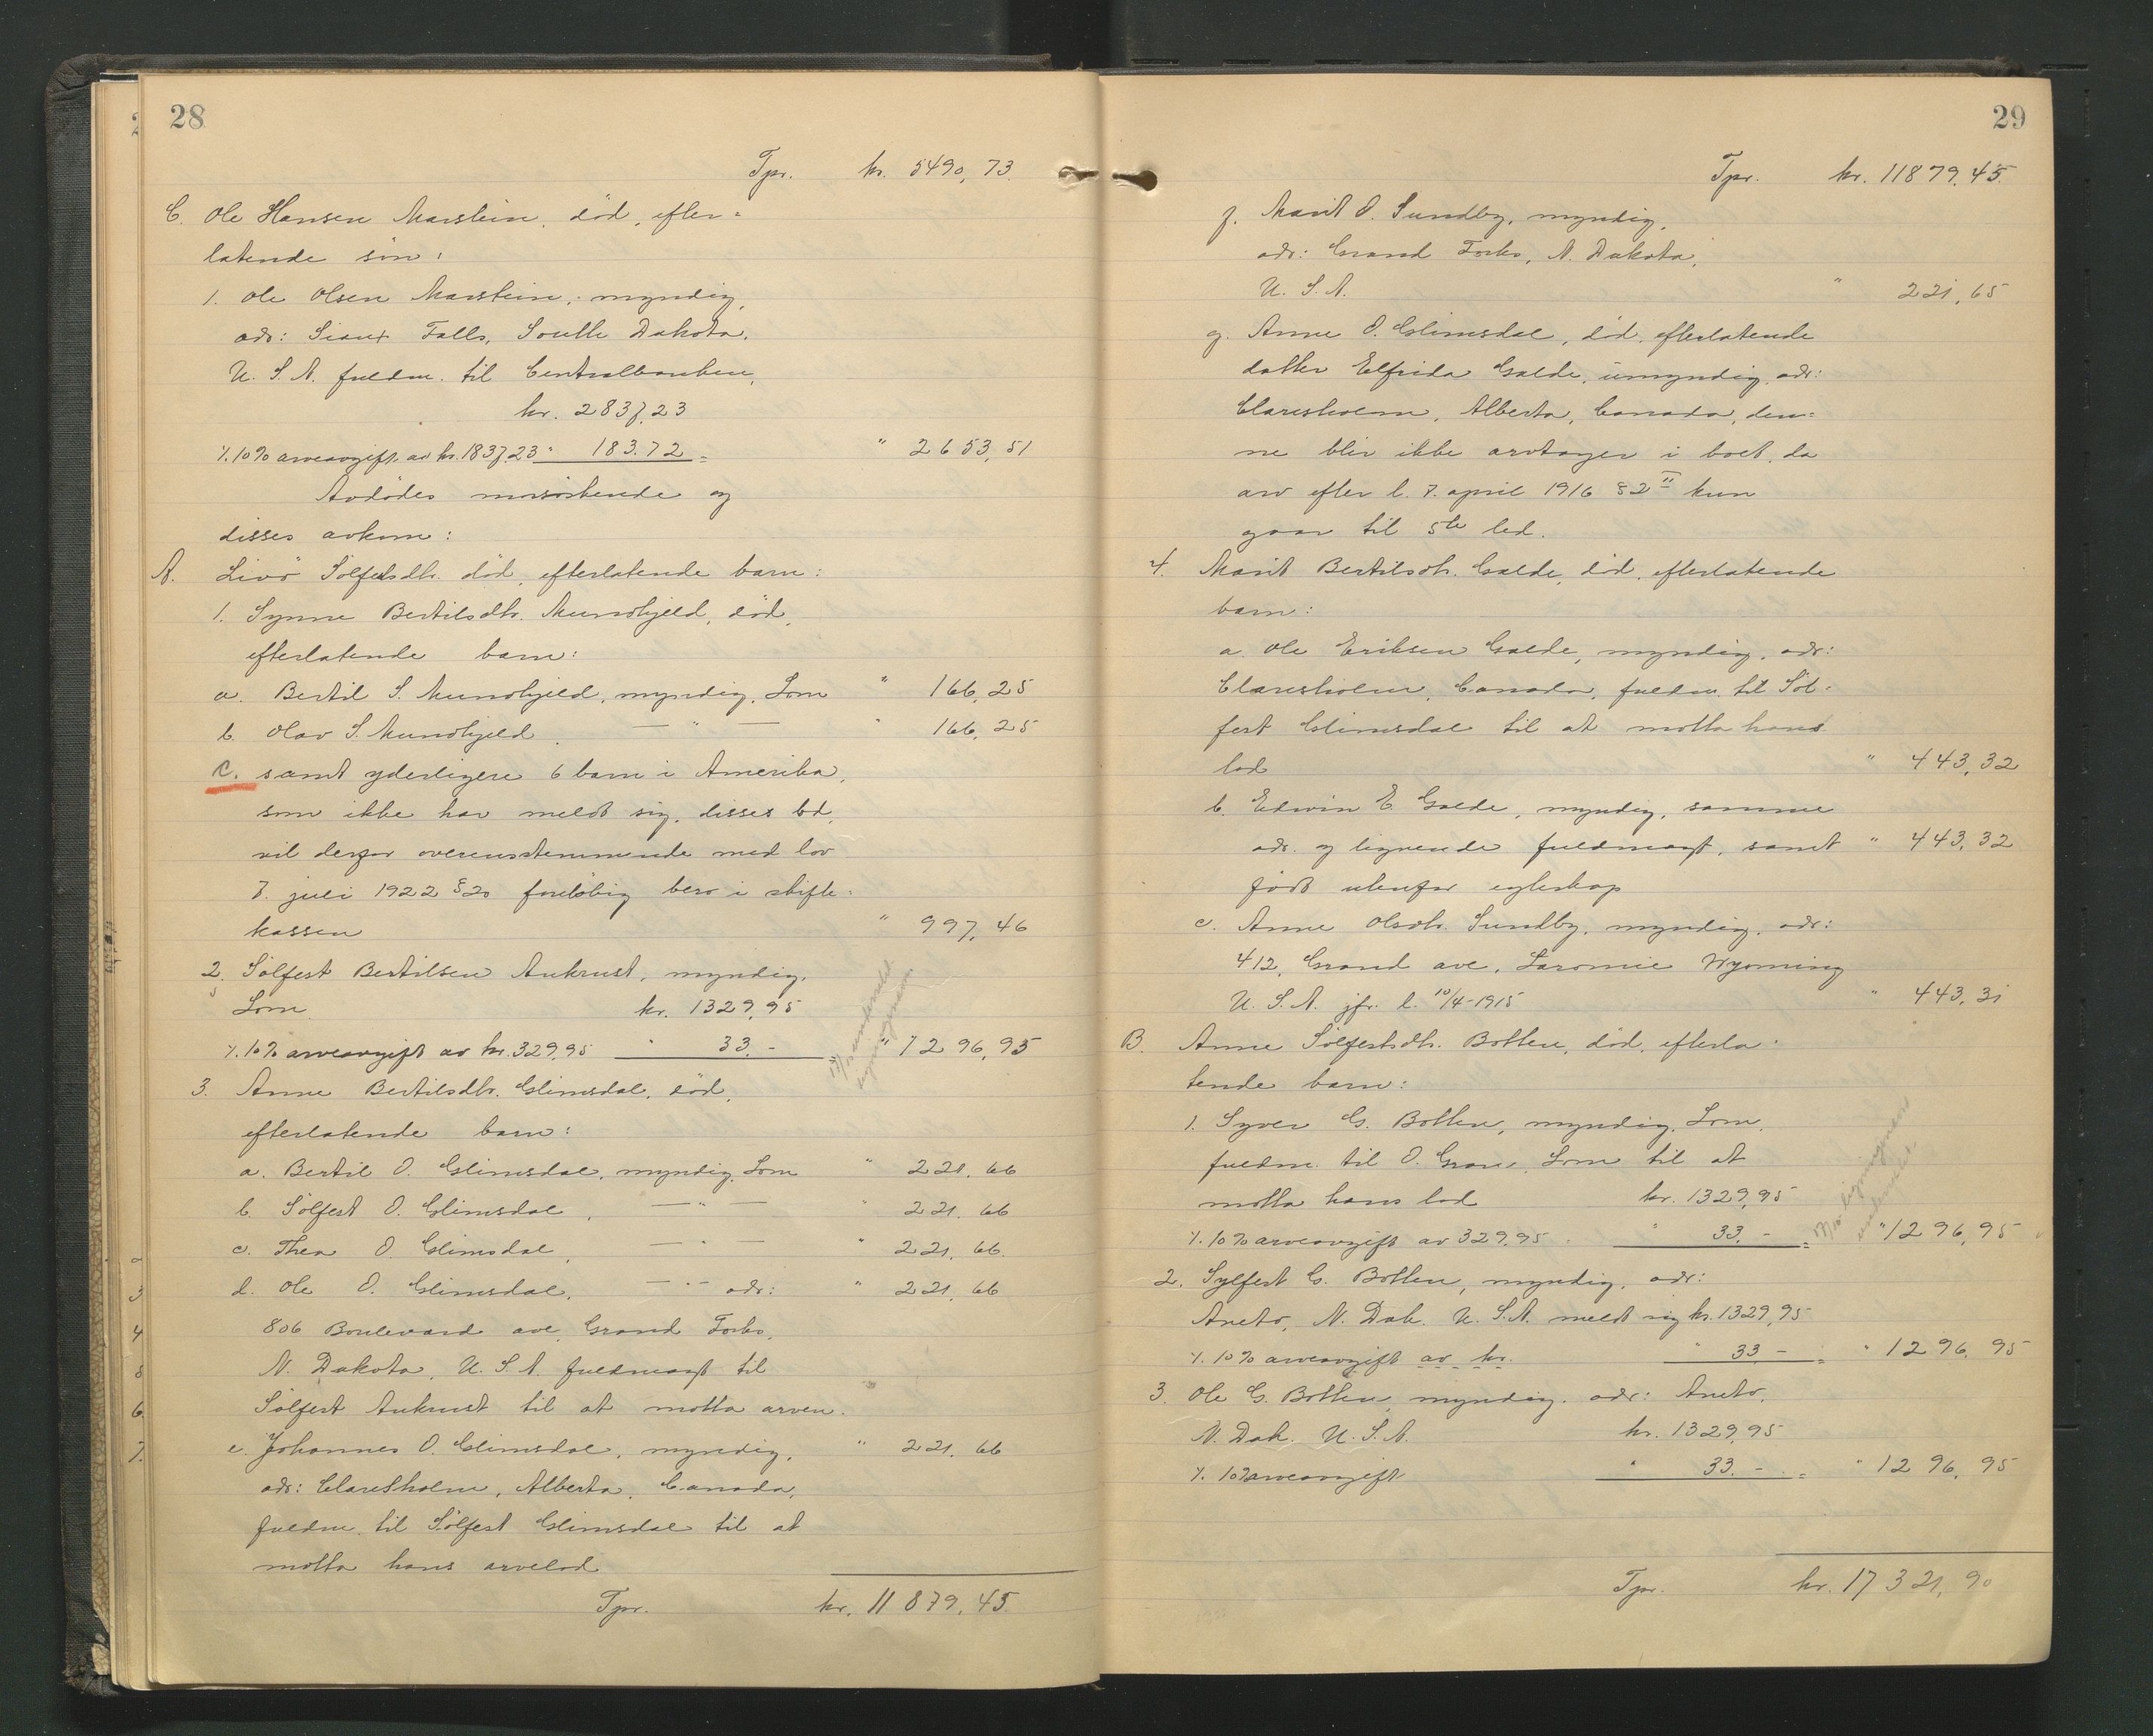 28
Tpr. kr. 5490,73
C. Ole Hansen Marstein, død, efter-
latende søn:
1. Ole Olsen Marstein, myndig,
adr: Sioux Falls, South Dakota,
U. S. A. fuldm. til Centralbanken,
kr. 2837,23
÷ 10% arveavgift av kr. 1837,23 " 183.72 = " 2653,51
Avdødes morsøskende og
disses avkom:
A. Livø Sølfestsdtr. død, efterlatende barn:
1. Synne Bertilsdtr. Mundhjeld, død,
efterlatende barn:
a. Bertil S. Mundhjeld, myndig, Lom " 166,25
b. Olav S. Mundhjeld, — " — " 166,25
c. samt yderligere 6 barn i Amerika,
som ikke har meldt sig, disses lod,
vil derfor overensstemmende med lov
7. juli 1922 § 20 foreløbig bero i skifte-
kassen " 997,46
2. Sølfest Bertilsen Aukrust, myndig,
Lom kr. 1329,95
÷ 10% arveavgift av kr. 329,95 " 33.- " 1296,95
3. Anne Bertilsdtr. Glimsdal, død,
efterlatende barn:
a. Bertil O. Glimsdal, myndig, Lom " 221,66
b. Sølfest O. Glimsdal, — " — " 221,66
c. Thea O. Glimsdal, — " — " 221,66
d. Ole O. Glimsdal, — " — adr: " 221,66
806 Boulevard ave, Grand Forks,
N. Dakota, U. S. A. fuldmagt til
Sølfest Aukrust til at motta arven.
e. Johannes O. Glimsdal, myndig, " 221,66
adr: Claresholm, Alberta, Canada,
fuldm. til Sølfest Glimsdal til at
motta hans arvelod
Tpr. kr. 11879,45
29
Tpr. kr. 11879,45
f. Marit O. Sundby, myndig,
adr: Grand Forks, N. Dakota,
U. S. A. " 221,65
g. Anne O. Glimsdal, død, efterlatende
datter Elfrida Galde, umyndig, adr:
Claresholm, Alberta, Canada, den-
ne blir ikke arvtager i boet, da
arv efter l. 7. april 1916 § 2 II kun
gaar til 5te led.
4. Marit Bertilsdtr. Galde, død, efterlatende
barn:
a. Ole Eriksen Galde, myndig, adr:
Claresholm, Canada, fuldm. til Søl-
fest Glimsdal til at motta hans
lod " 443,32
b. Edwin E. Galde, myndig, samme
adr. og lignende fuldmagt, samt " 443,32
født utenfor egteskap
c. Anne Olsdtr. Sundby, myndig, adr:
412, Grand ave, Laromie Wyoming
U. S. A. jfr. l. 10/4-1915 " 443,31
B. Anne Sølfestsdtr. Botten, død, efterla-
tende barn:
1. Syver G. Botten, myndig, Lom,
fuldm. til O. Grav, Lom til at
motta hans lod kr. 1329,95
÷ 10% arveavgift av 329,95 " 33.- = " 1296,95
2. Sylfest G. Botten, myndig, adr:
Aneto, N. Dak. U. S. A. meldt sig kr. 1329,95
÷ 10% arveavgift av kr. " 33.- = " 1296,95
3. Ole G. Botten, myndig, adr: Aneto,
N. Dak. U. S. A. kr. 1329,95
÷ 10% arveavgift " 33.- = " 1296,95
Tpr. kr. 17321,90